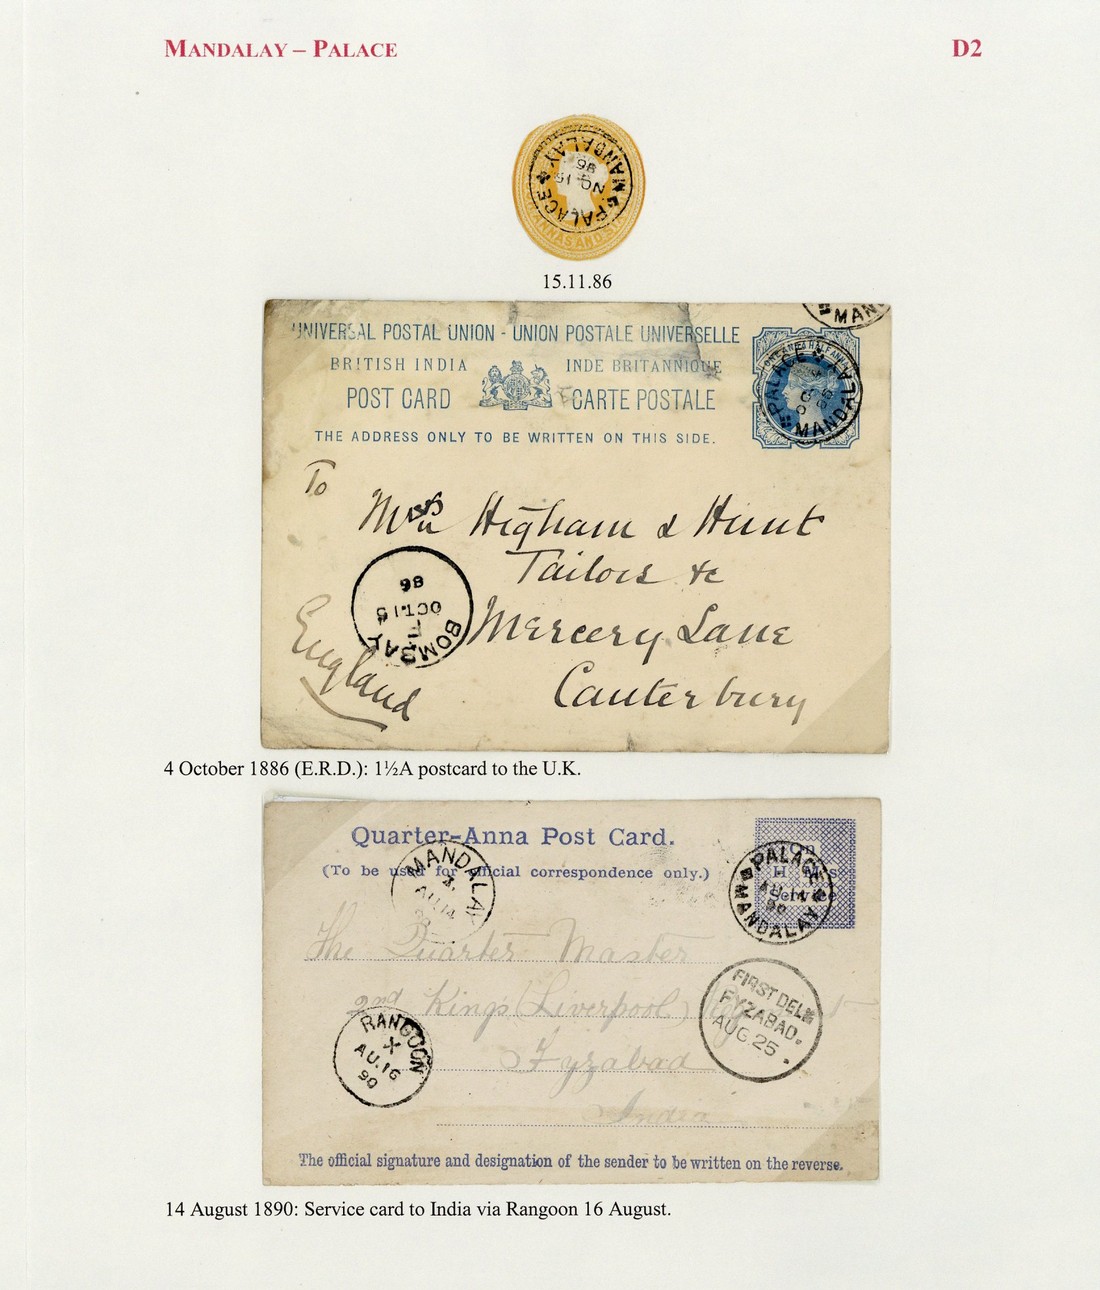 MANDALAY – PALACE
D2
PALACE MANDALAY
NO 15
86
ANNAS AND SIX
15.11.86
MANDA
UNIVERSAL POSTAL UNION - UNION POSTALE UNIVERSELLE
BRITISH INDIA INDE BRITANNIQUE
POST CARD CARTE POSTALE
THE ADDRESS ONLY TO BE WRITTEN ON THIS SIDE.
ONE ANNA & HALF ANNA
PALACE MANDALAY
To
Higham & Hunt
Tailors &c
Mercery Lane
Canterbury
England
BOMBAY
OCT. 15
86
4 October 1886 (E.R.D.): 1½A postcard to the U.K.
Quarter-Anna Post Card.
(To be used for official correspondence only.)
On
H M S
Service
PALACE
AU 14
90
MANDALAY
MANDALAY
AU.14
90
The Quarter Master
2nd Kings (Liverpool)
Fyzabad
India
RANGOON
X
AU.16
90
FIRST DEL
FYZABAD.
AUG. 25
The official signature and designation of the sender to be written on the reverse.
14 August 1890: Service card to India via Rangoon 16 August.